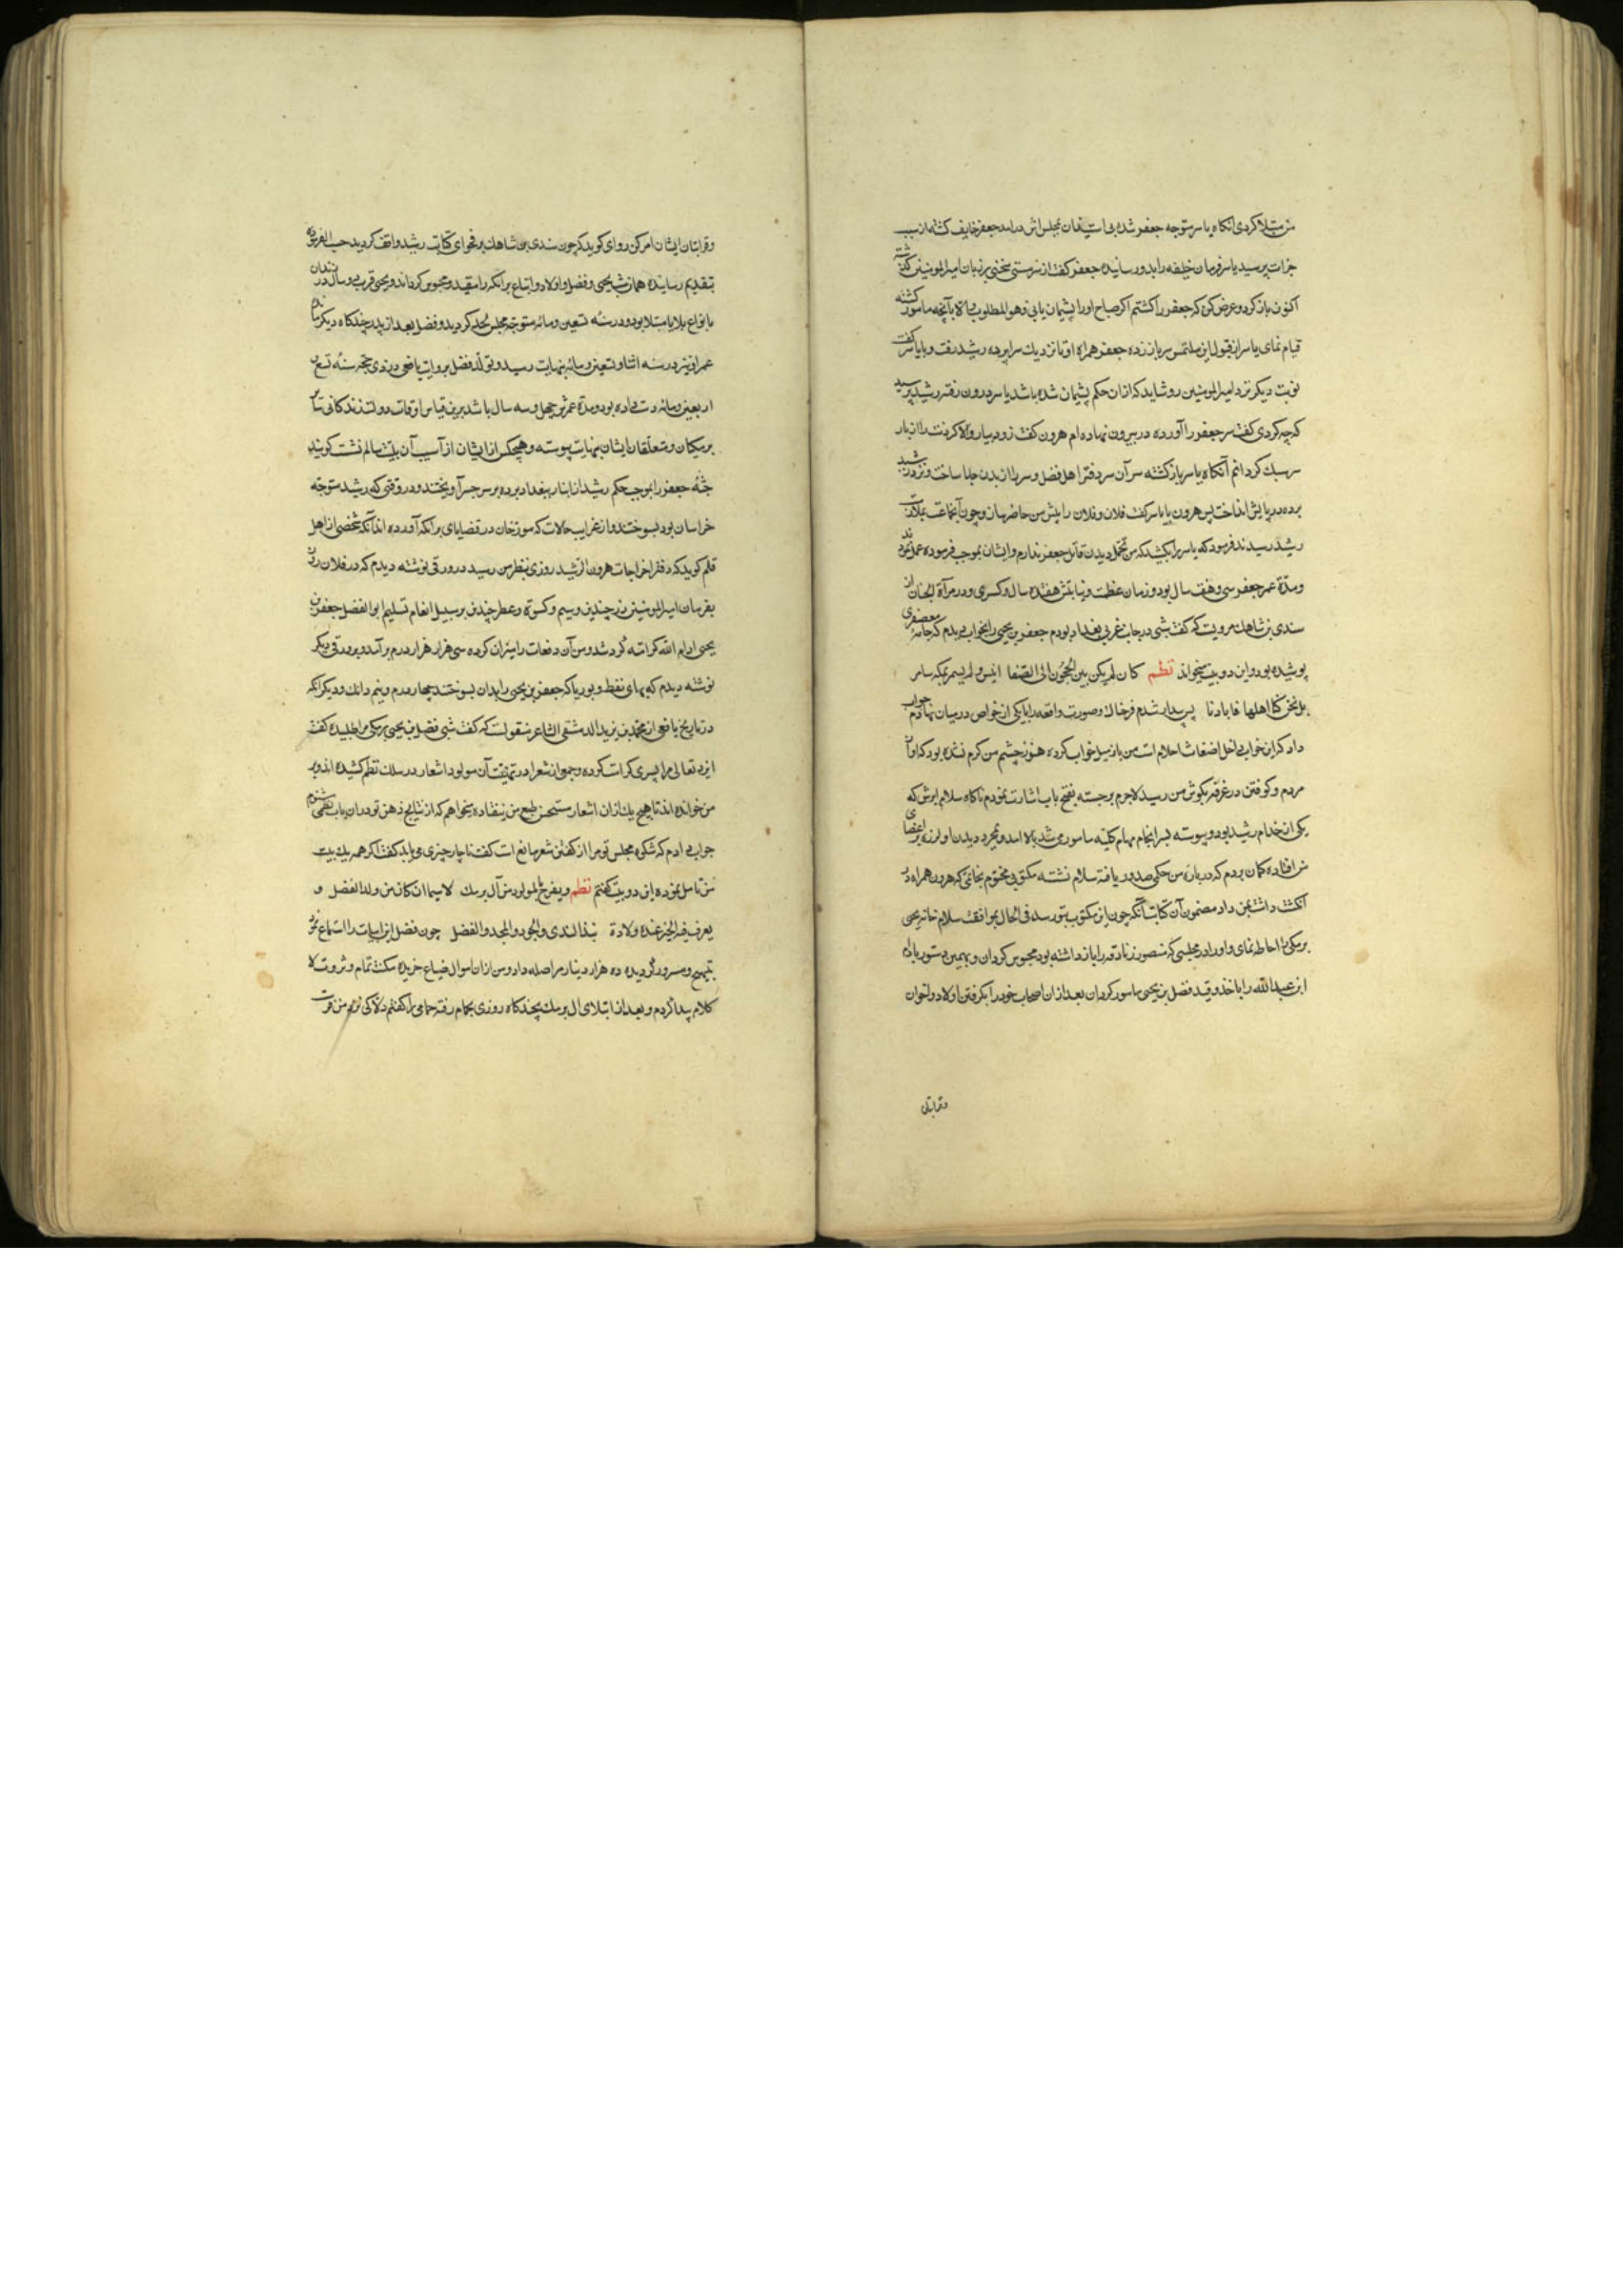 من مبتلا کردی آنکاه یاسر متوجه جعفر شده بی استیذان بمجلس اش درآمد جعفر خایف کشته از سبب
جرات پرسید یاسر فرمان خلیفه را بدو رسانیده جعفر کفت از سر مستی سخنی بر زبان امیرالمومنین کذشته
اکنون باز کرد و عرض کن که جعفر را کشتم اکر صباح اورا پشیمان یابی و هو المطلوب والا بآنچه مامور کشته
قیام نمای یاسر از قبول این ملتمس سر باز زده جعفر همراه او تا نزدیك سراپرده رشید رفت و با یاسر کفت
نوبت دیکر نزد امیرالمومنین رو شاید که ازان حکم پشیمان شده باشد یاسر درون رفته رشید پرسید
که چه کردی کفت سر جعفر را آورده در بیرون نهاده ام هرون کفت زود بیار والا کردنت را از بار
سر سبك کردانم آنکاه یاسر بازکشته سر آن سر دفتر اهل فضل و سر را از بدن جدا ساخت و نزد رشید
برده در پایش انداخت پس هرون با یاسر کفت فلان و فلان را پیش من حاضر ساز و چون آنجماعت بملازمت
رشید رسیدند فرمود که یاسر را بکشید که من تحمل دیدن قاتل جعفر ندارم و ایشان بموجب فرموده عمل نمودند
و مدة عمر جعفر سی و هفت سال بود و زمان عظمت و نیابتش هفده سال و کسری و در مرآة الجنان از
سندی بن شاهك مرویست که کفت شبی در جانب غربی بغداد بودم جعفر بن یحیی را بخواب دیدم که جامهٔ معصفری
پوشیده بود و این دو بیت میخواند نظم کان لم یکن بین الحجون الی الصفا انیس و لم یسمر بمکه سامر
بل نحن کنا اهلها فابادنا پس بیدار شدم فزعناك و صورت واقعه را با یکی از خواص درمیان نهادم جواب
داد که این خواب داخل اضغاث احلام است من باز میل خواب کرده هنوز چشم من کرم نشده بود که آواز
مردم و کوفتن در غرفه بکوش من رسید لاجرم برجسته بفتح باب اشارت نمودم ناکاه سلام ابرش که
یکی از خدام رشید بود و پیوسته بسرانجام مهام کلیه مامور می شد بالا آمد و بمجرد دیدن او لرزه بر اعضای
من افتاده کمان بردم که در بارهٔ من حکمی صدور یافته سلام نشسته مکتوبی مختوم بخاتمی که هرون همراه در
انکشت داشت بمن داد مضمون آن کتابت آنکه چون این مکتوب بتو رسد فی الحال بموافقت سلام خانه یحیی
برمکی را احاطه نمای و اورا در مجلسی که منصور زنادقه را باز داشته بود محبوس کردان و بهمین دستور بادام
ابن عبدالله را باخذ و قید فضل بن یحیی مامور کردان بعد ازان اصحاب خود را بکرفتن اولاد و اخوان
وقرابتان
وقرابتان ایشان امر کن راوی کوید که چون سندی بن شاهك بر فحوای کتابت رشید واقف کردید حسب الفرموده
بتقدیم رسانیده همان شب یحیی و فضل و اولاد و اتباع برامکه را مقید و محبوس کرداند و یحیی قریب دو سال در زندان
بانواع بلایا مبتلا بود و در سنه تسعین و مائه متوجه مجلس لحد کردید و فضل بعد از پدر چندکاه دیکر
عمر او نیز در سنه اثنا و تسعین و مائه بنهایت رسید و تولد فضل بروایت یافعی در ذی حجه سنه تسع
اربعین و مائه دست داده بود و مدة عمرش چهل و سه سال باشد برین قیاس اوقات دولت زندکانی تمام
برمکیان و متعلقان ایشان بنهایت پیوسته و هیچکس از ایشان از آسیب آن بلیت سالم نکشت کویند
جثهٔ جعفر را بموجب حکم رشید از انبار ببغداد برده بر سر جسر آویختند و در وقتی که رشید متوجه
خراسان بود بسوختند و از غرایب حالات که مورخان در قضایای برامکه آورده اند آنکه شخصی از اهل
قلم کوید که دفتر اخراجات هرون الرشید روزی بنظر من رسید در ورقی نوشته دیدم که در فلان روز
بفرمان امیرالمومنین زر چندین و سیم و کسوة و عطر چندین بر سبیل انعام تسلیم ابوالفضل جعفر بن
یحیی ادام الله کرامته کرده شد و من آن دفعات را میزان کرده سی هزار هزار درم برآمد و بر ورقی دیکر
نوشته دیدم که بهای نفط و بوریا که جعفر بن یحیی را بدان بسوختند چهار درم و نیم دانك و دیکر آنکه
در تاریخ یافعی از محمد بن یزید الدمشقی الشاعر منقولست که کفت شبی فضل بن یحیی برمکی مرا طلبیده کفت
ایزد تعالی مرا پسری کرامت کرده و جمعی از شعرا در تهنیت آن مولود اشعار در سلك نظم کشیده اند و بر
من خوانده اند تا هیچ یك ازان اشعار مستحسن طبع من نیفتاده میخواهم که از نتایج ذهن تو دران باب نظمی شنوم
جواب دادم که شکوه مجلس تو مرا از کفتن شعر مانع است کفت ناچار چیزی می باید کفت اکر همه یك بیت
من تامل نموده این دو بیت کفتم نظم و یفرح المولود من آل برمك لاسیما ان کان من ولد الفضل و
یعرف فیه الخیر عند ولادة ببذل الندی والجود والمجد والفضل چون فضل این ابیات را استماع نمود
مبتهج و مسرور کردیده ده هزار دینار مرا صله داد و من ازان اموال ضیاع خریده مکنت تمام و ثروت لا
کلام پیدا کردم و بعد از ابتلای آل برمك بچندکاه روزی بحمام رفته حمامی را کفتم دلاکی نزد من فرست